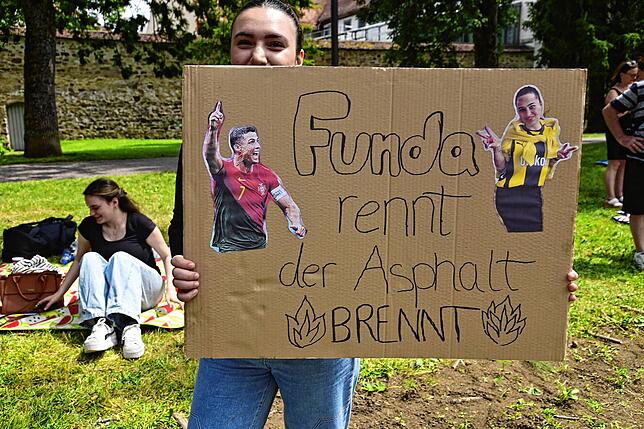 Funda
rennt
der Asphalt
BRENNT
7